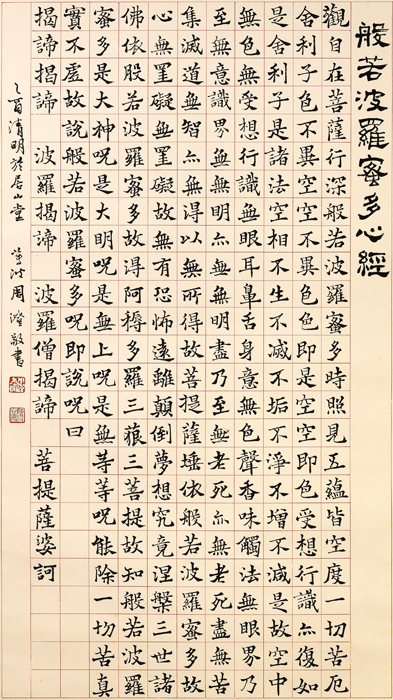 般若波羅蜜多心經
觀自在菩薩行深般若波羅蜜多時照見五蘊皆空度一切苦厄
舍利子色不異空空不異色色即是空空即色受想行識亦復如
是舍利子是諸法空相不生不滅不垢不淨不增不減是故空中
無色無受想行識無眼耳鼻舌身意無色聲香味觸法無眼界乃
至無意識界無無明亦無無明盡乃至無老死亦無老死盡無苦
集滅道無智亦無得以無所得故菩提薩埵依般若波羅蜜多故
心無罣礙無罣礙故無有恐怖遠離顛倒夢想究竟涅槃三世諸
佛依般若波羅蜜多故得阿耨多羅三藐三菩提故知般若波羅
蜜多是大神咒是大明咒是無上咒是無等等咒能除一切苦真
實不虛故說般若波羅蜜多咒即說咒曰
揭諦揭諦 波羅揭諦 波羅僧揭諦 菩提薩婆訶
乙酉清明於居山堂 周澄敬書